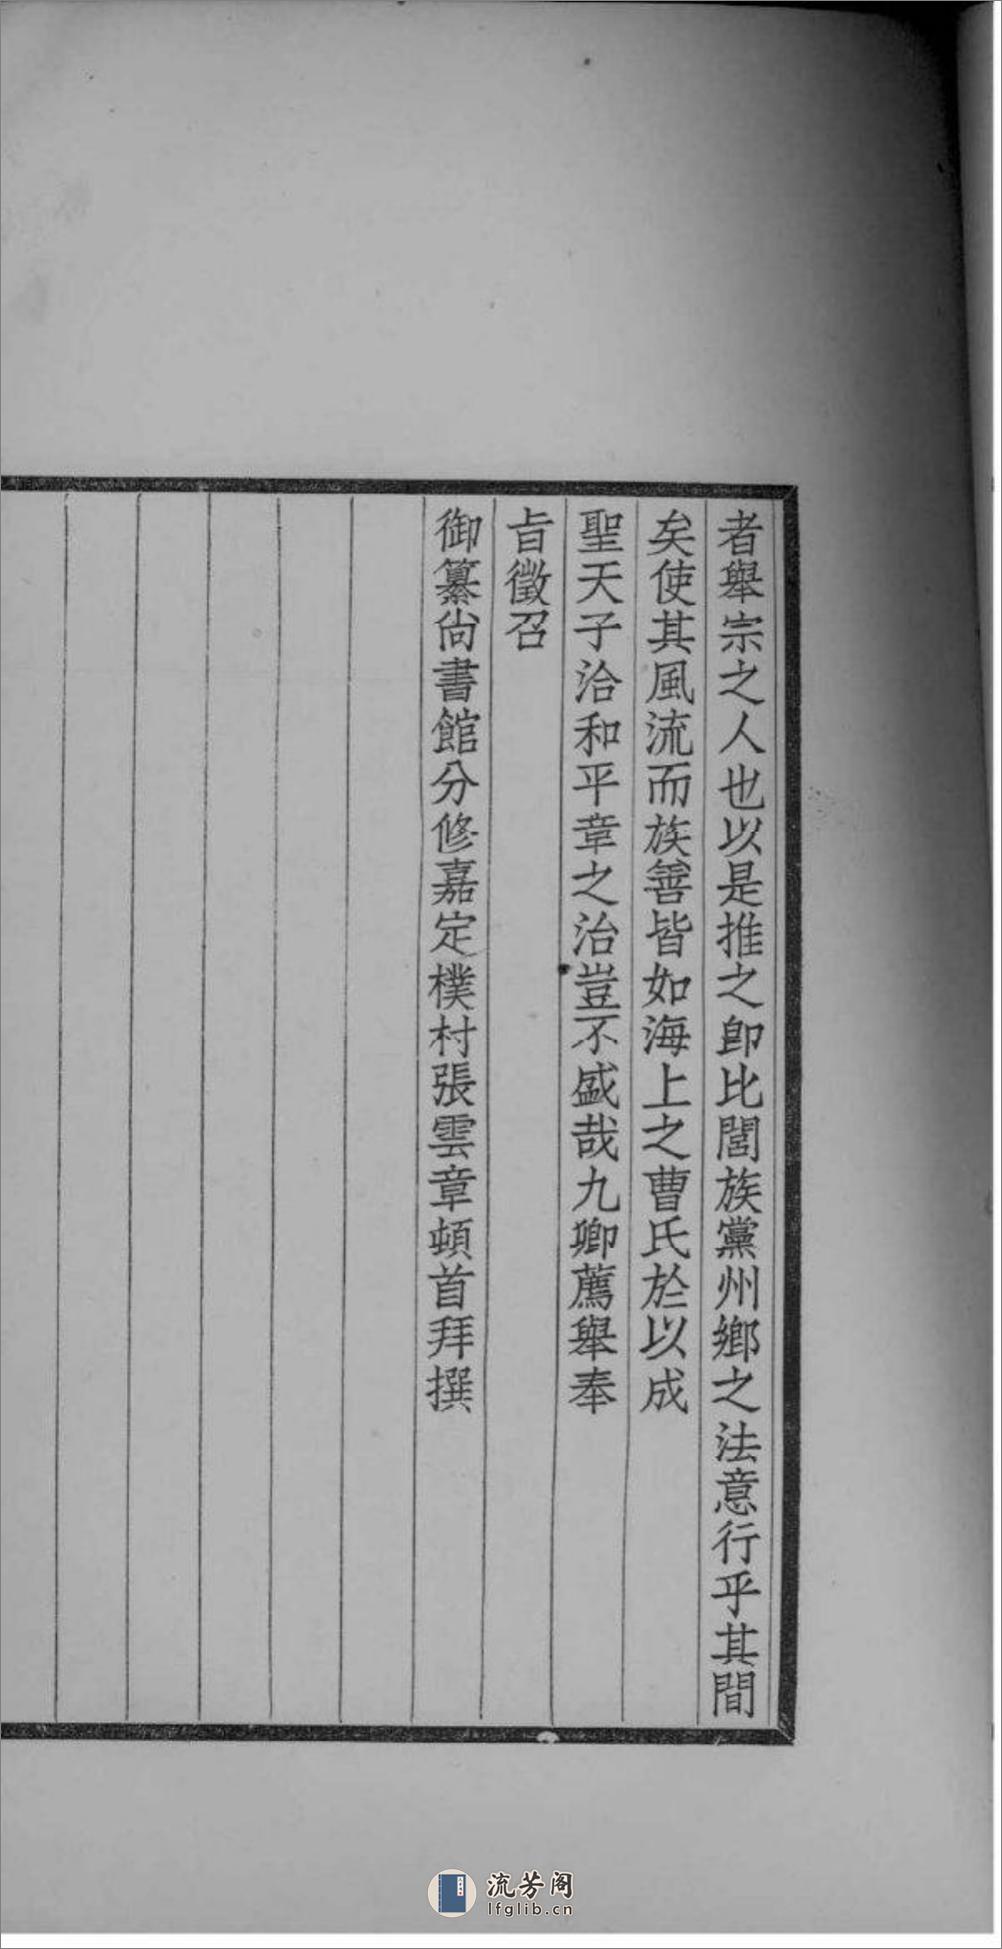 者舉宗之人也以是推之卽比閭族黨州鄉之法意行乎其間
矣使其風流而族善皆如海上之曹氏於以成
聖天子洽和平章之治豈不盛哉九卿薦舉奉
旨徵召
御纂尙書館分修嘉定樸村張雲章頓首拜撰
流芳阁
lfglib.cn